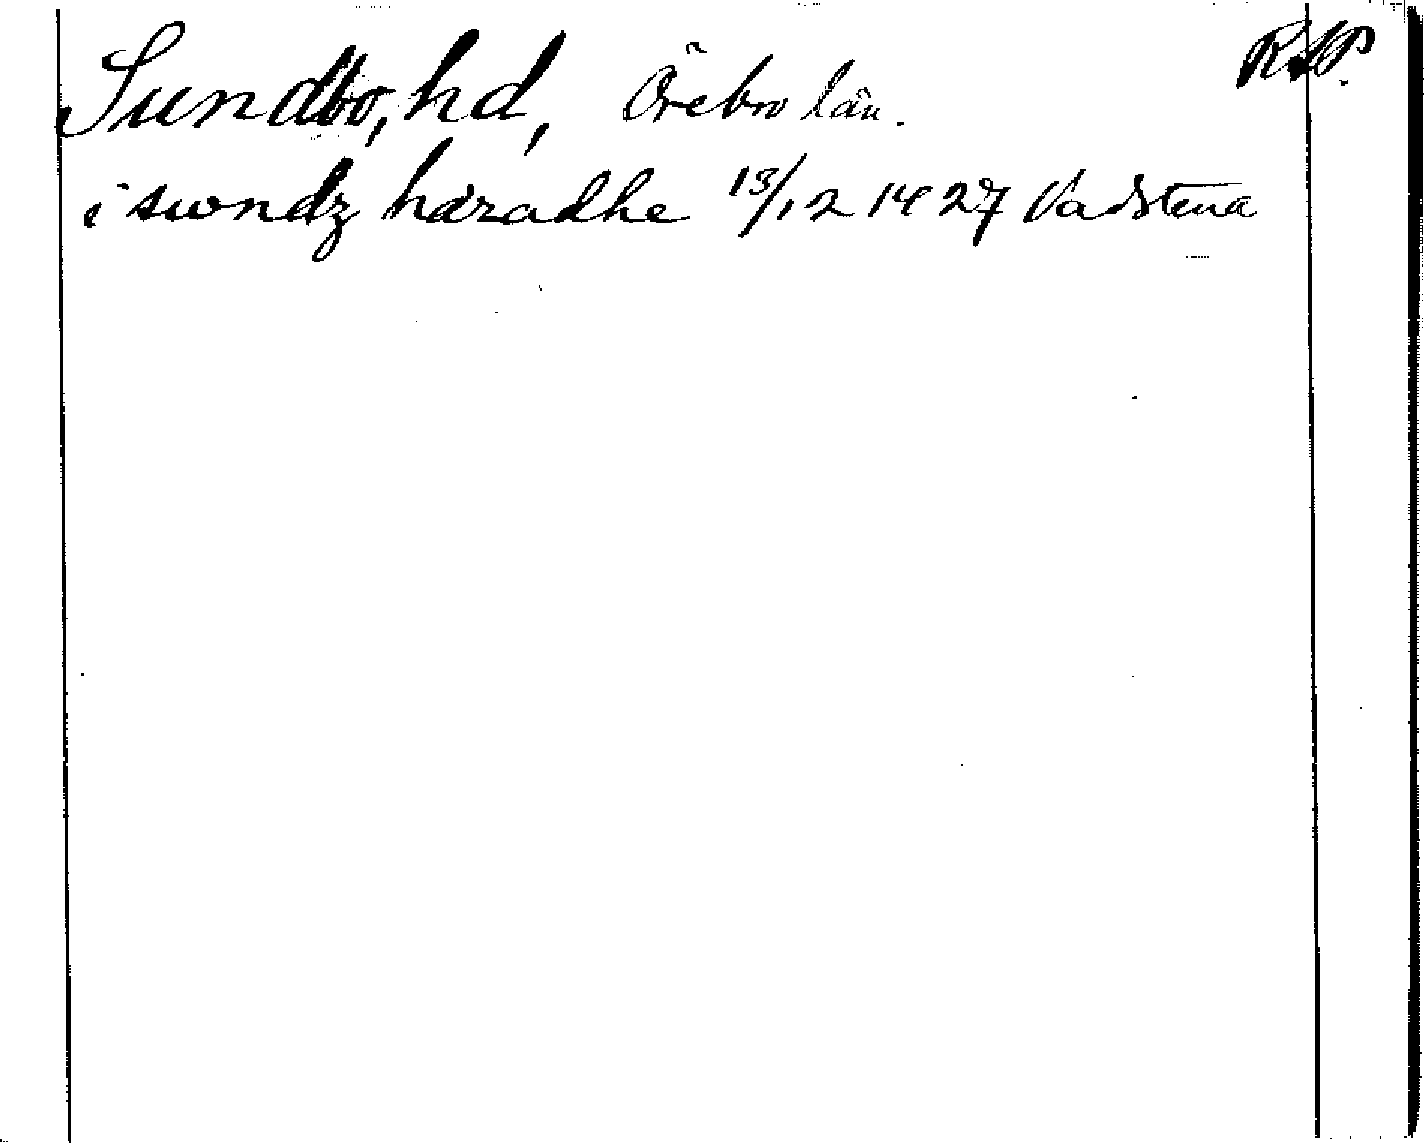 Sundbo, hd, Örebro län. RAP.
i swndz häradhe 13/12 1427 Vadstena